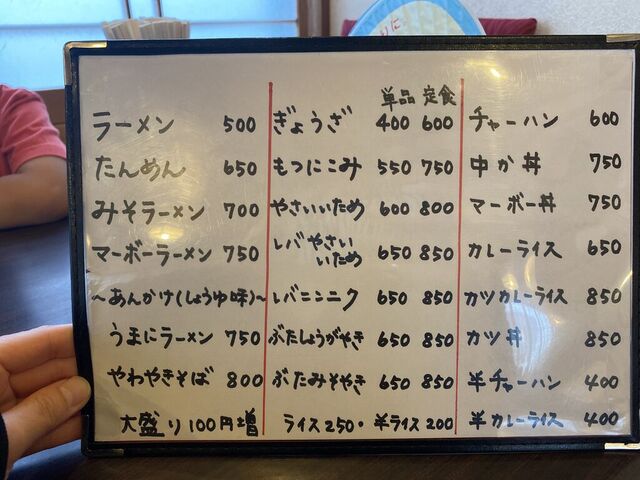 ラーメン 500
たんめん 650
みそラーメン 700
マーボーラーメン 750
〜あんかけ(しょうゆ味)〜
うまにラーメン 750
やわやきそば 800
大盛り100円増
単品 定食
ぎょうざ 400 600
もつにこみ 550 750
やさいいため 600 800
レバやさい
いため 650 850
レバニンニク 650 850
ぶたしょうがやき 650 850
ぶたみそやき 650 850
ライス250・半ライス200
チャーハン 600
中か丼 750
マーボー丼 750
カレーライス 650
カツカレーライス 850
カツ丼 850
半チャーハン 400
半カレーライス 400